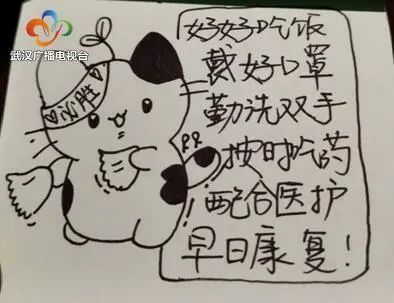 武汉广播电视台
必胜
好好吃饭
戴好口罩
勤洗双手
按时吃药
配合医护
早日康复！